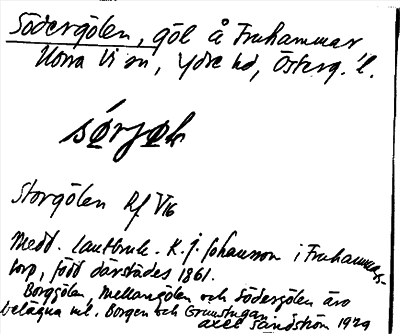 Södergölen, göl å Fruhammar
Norra Vi sn, Ydre hd, Österg. l.
sørjøk
Storgölen Rf V16
Medd. lantbruk. K. J. Johansson i Fruhammars-
torp, född därstädes 1861.
Borggölen, Mellangölen och Södergölen äro
belägna ml. Borgen och Grönstugan.
Axel Sandström 1929